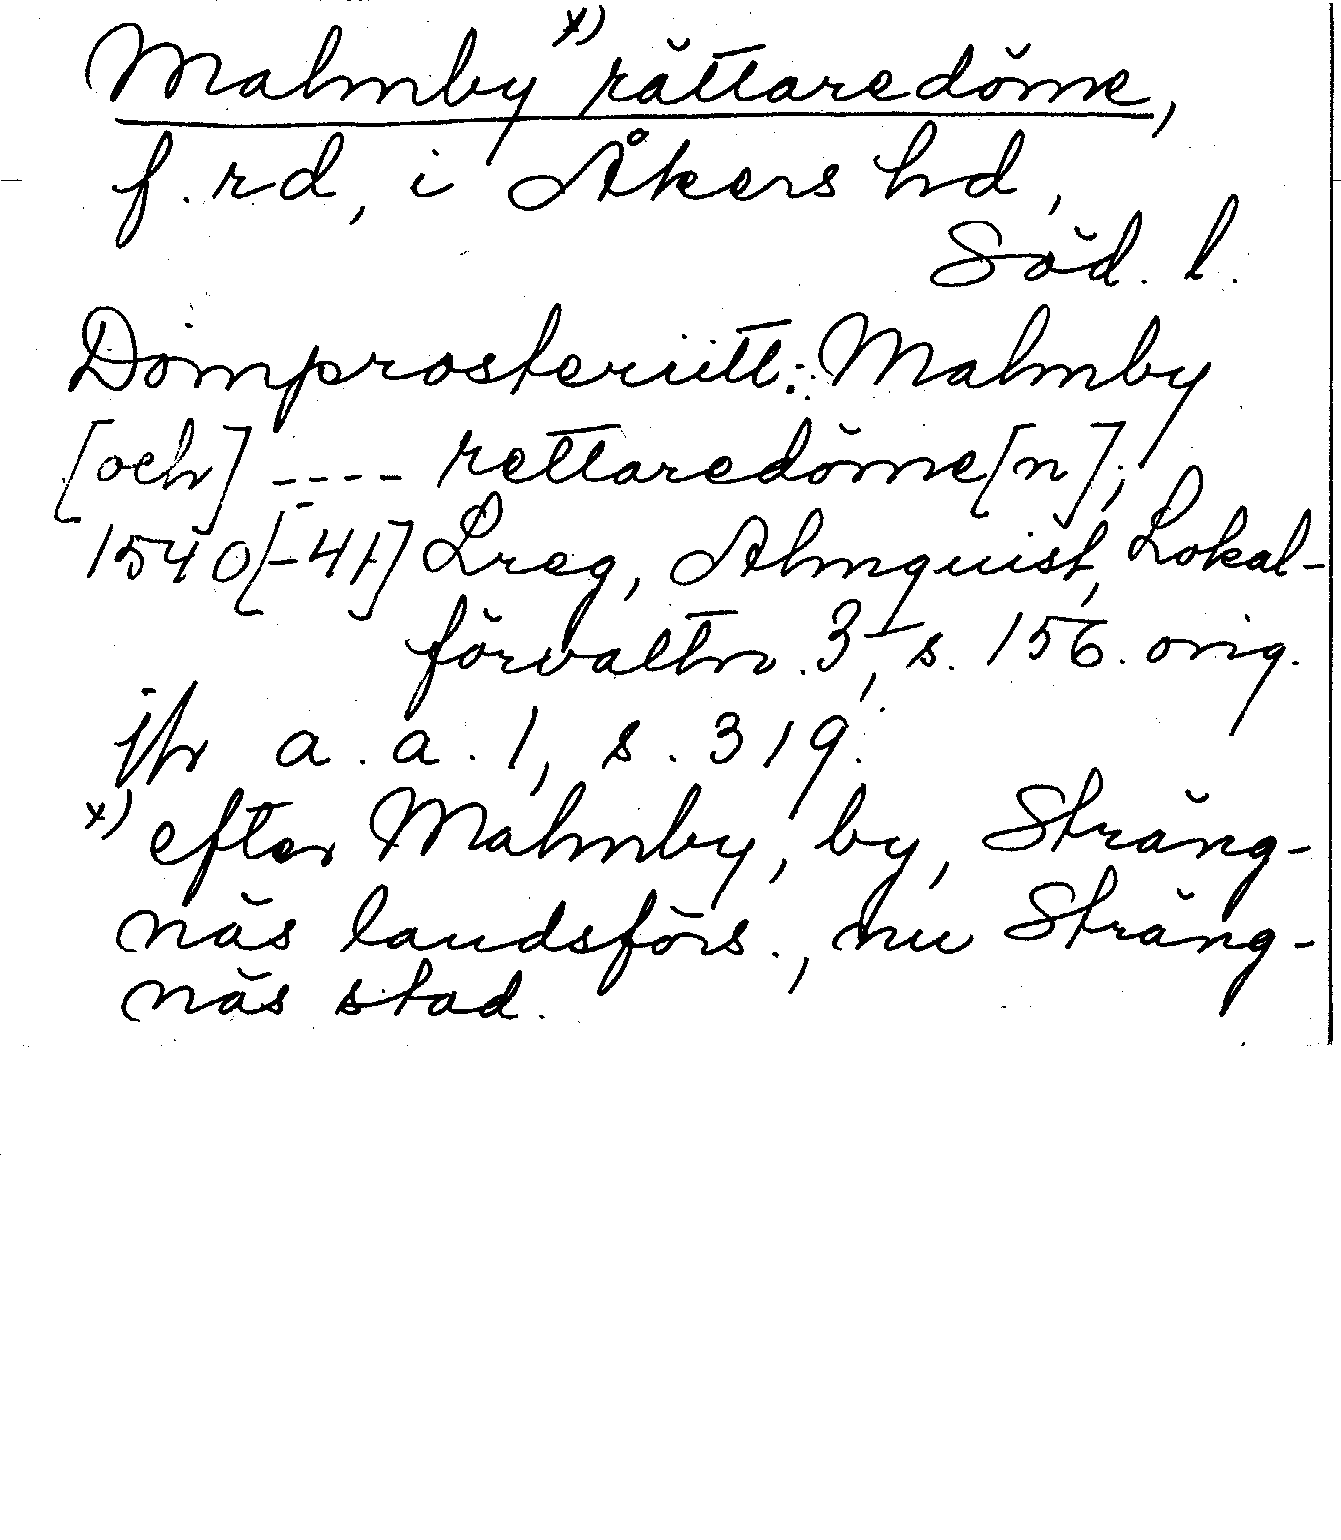 Malmby x) rättaredöme,
f. rd, i Åkers hd,
Söd. l.
Domprosteriitt: Malmby
[och] ---- rettaredöme[n];
1540[-41] Lreg, Almquist, Lokal-
förvaltn. 3, s. 156. orig.
jfr a. a. 1, s. 319.
x) efter Malmby, by, Sträng-
näs landsförs., nu Sträng-
näs stad.